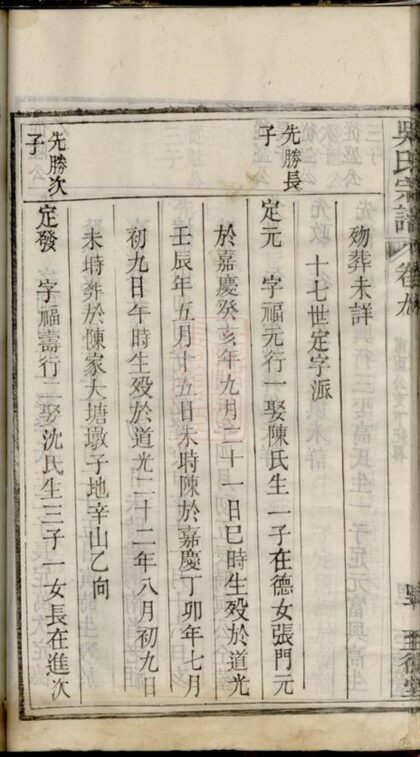 吳氏宗譜 卷九
歿葬未詳
十七世定字派
先勝長
子
定元 字福元行一娶陳氏生一子在德女張門元
於嘉慶癸亥年九月二十一日巳時生歿於道光
壬辰年五月十五日未時陳於嘉慶丁卯年七月
初九日午時生歿於道光二十二年八月初九日
未時葬於陳家大塘墩子地辛山乙向
先勝次
子
定發 字福壽行二娶沈氏生三子一女長在進次